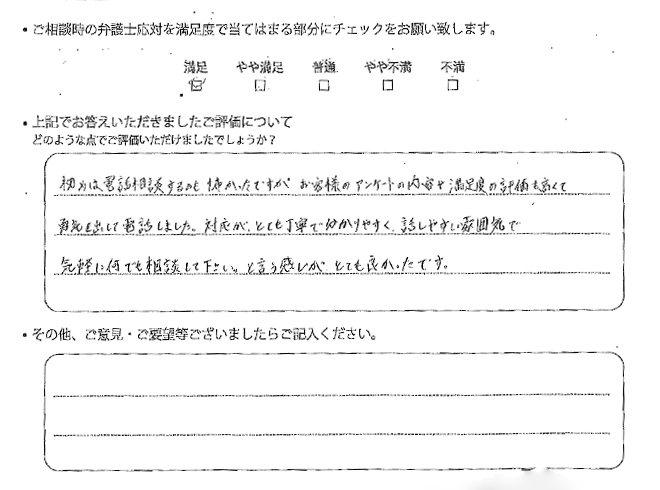 ・ご相談時の弁護士応対を満足度で当てはまる部分にチェックをお願い致します。
満足 やや満足 普通 やや不満 不満
・上記でお答えいただきましたご評価について
どのような点でご評価いただけましたでしょうか？
初めは電話相談するのも怖かったですが お客様のアンケートの内容や満足度の評価も高くて
勇気を出して電話しました。対応が、とても丁寧で分かりやすく、話しやすい雰囲気で
気軽に何でも相談して下さい。と言う感じが とても良かったです。
・その他、ご意見・ご要望等ございましたらご記入ください。